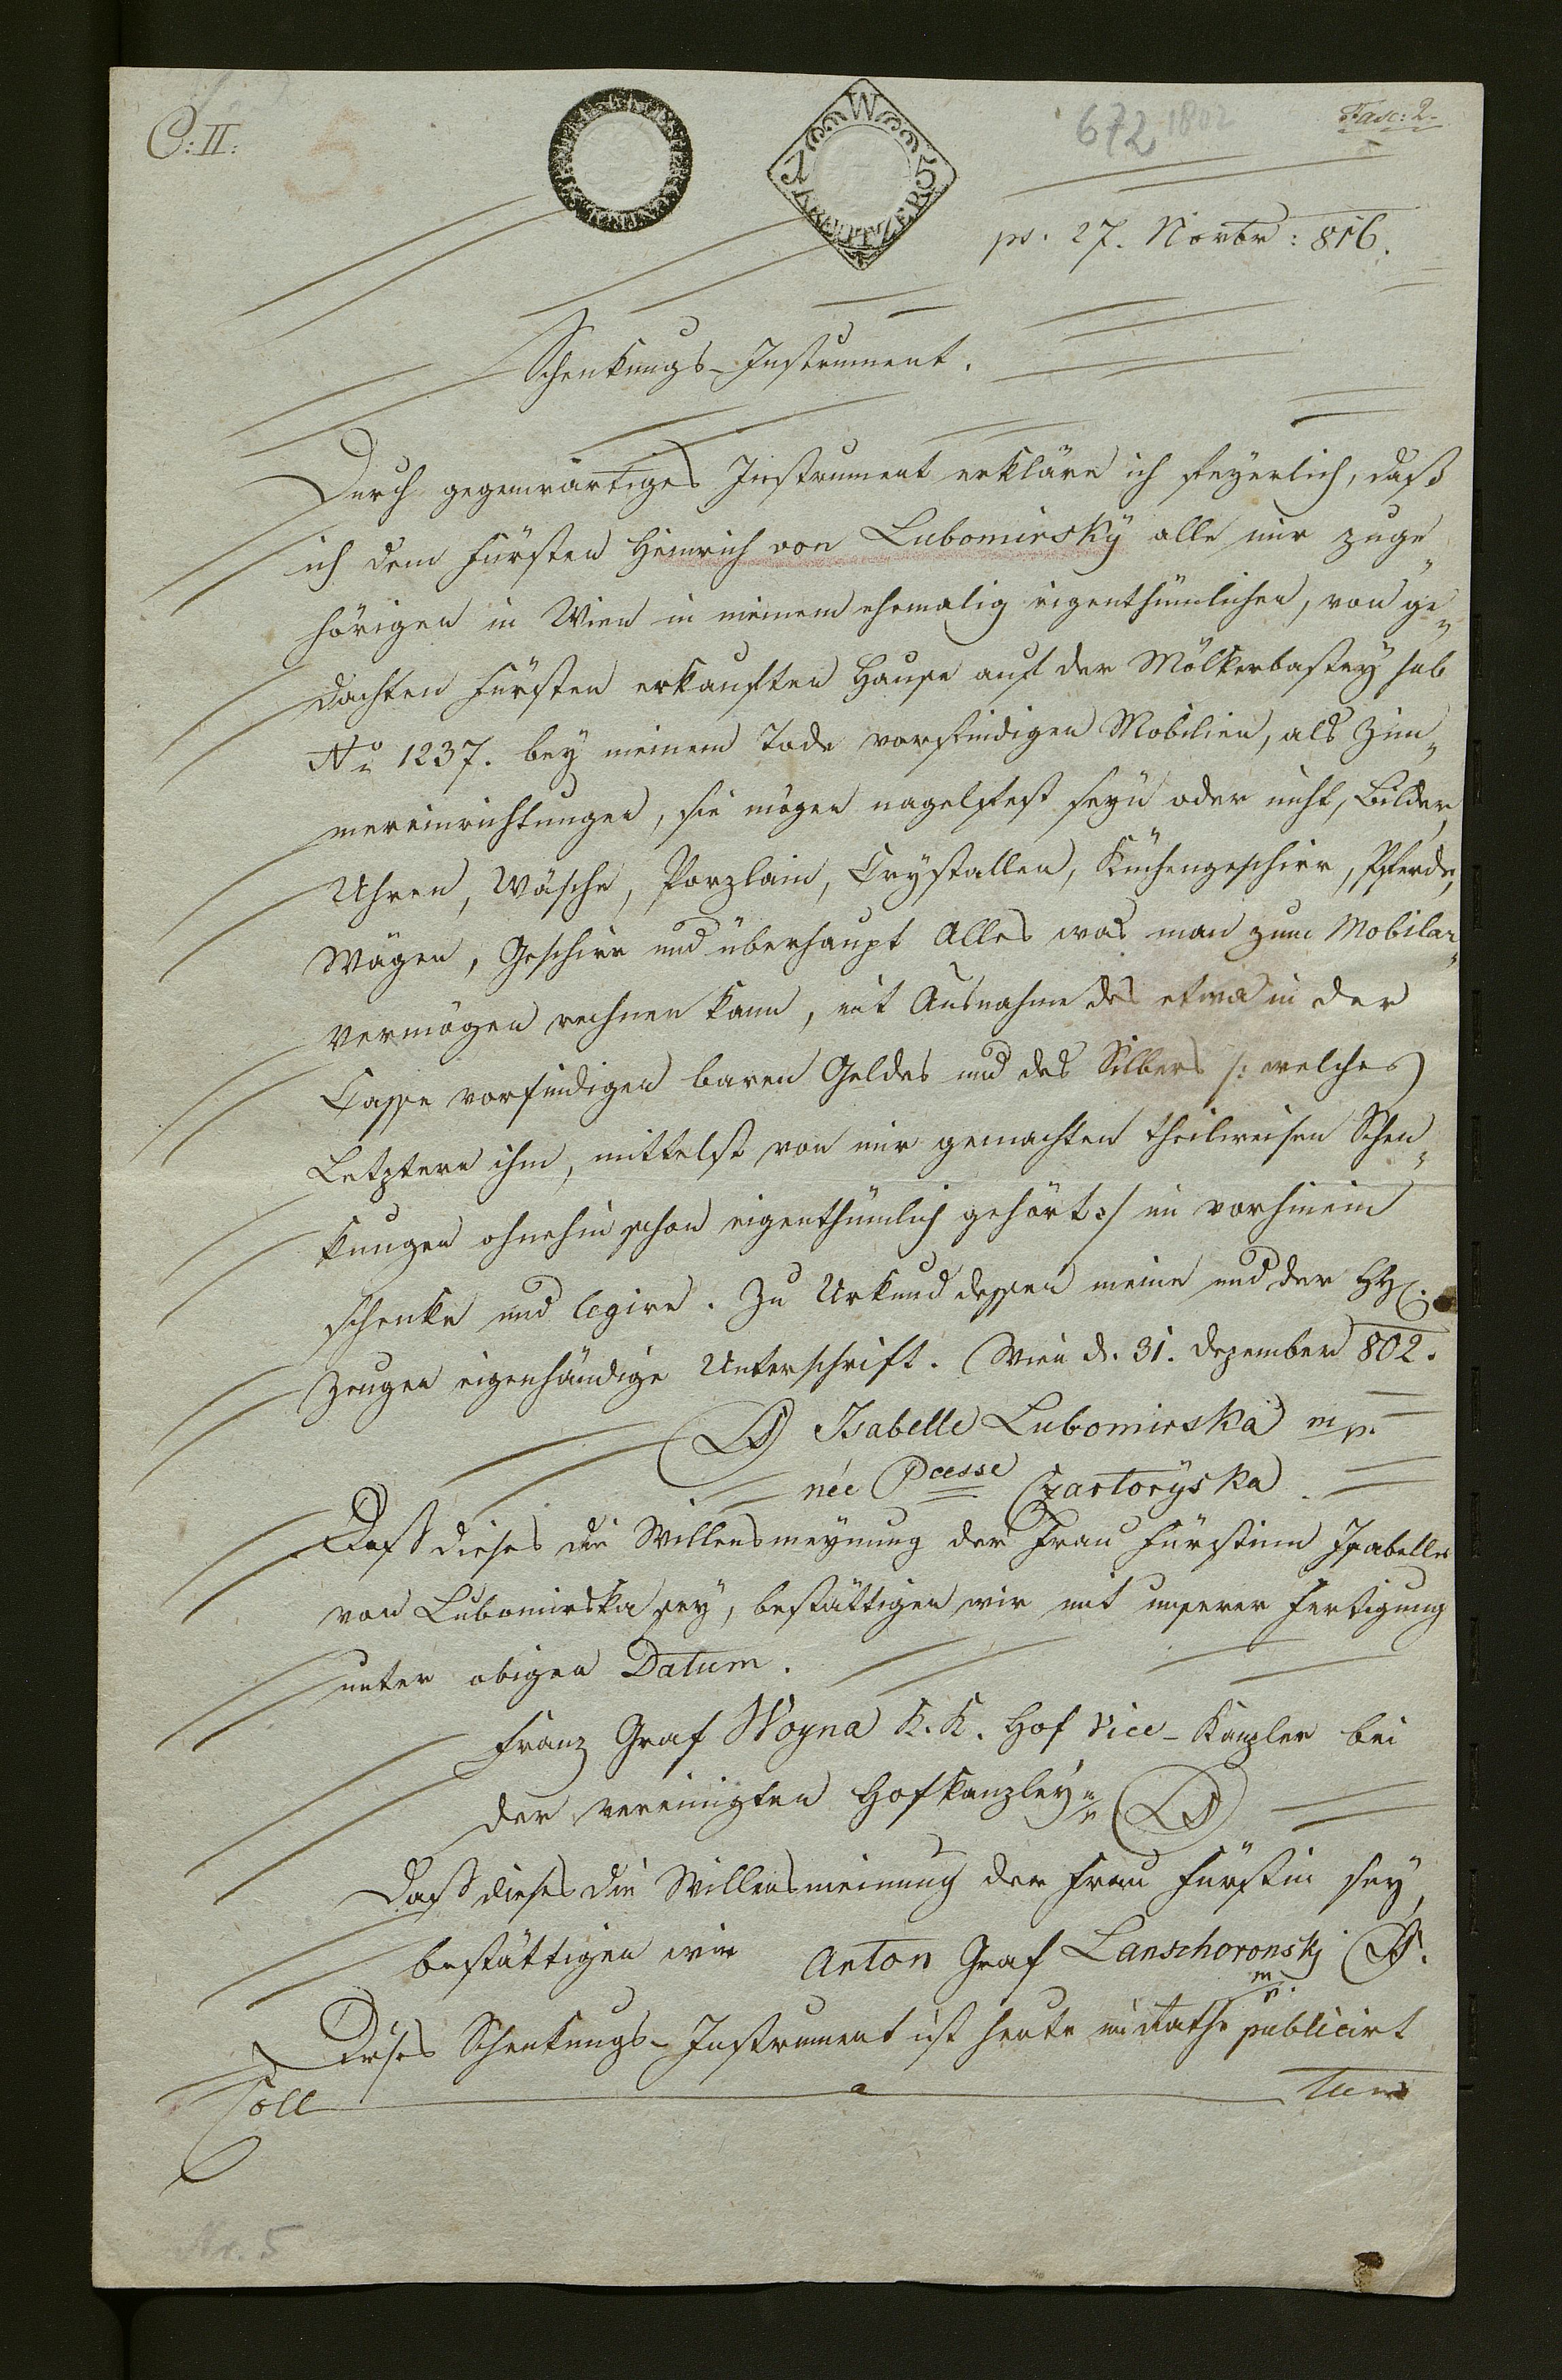 C: II:
5.
W
15
KREUTZER
672 1802
Fasc: 2.
ps. 27. Novbr: 816.
Schenkungs-Instrument.
Durch gegenwärtiges Instrument erkläre ich feyerlich, daß
ich dem Fürsten Heinrich von Lubomirsky alle mir zuge„
hörigen in Wien in meinem ehemalig eigenthümlichen, von ge„
dachten Fürsten erkauften Hause auf der Mölkerbastey sub
No 1237. bey meinem Tode vorfindigen Mobilien, als Zim„
mereinrichtungen, sie mögen nagelfest seyn oder nicht, Bilder,
Uhren, Wäsche, Porzlain, Crystallen, Küchengeschirr, Pferde,
Wägen, Geschirr und überhaupt Alles was man zum Mobilar„
vermögen rechnen kann, mit Ausnahme des etwa in der
Casse vorfindigen baren Geldes und des Silbers /: welches
Letztere ihm, mittelst von mir gemachten theilweisen Schen„
kungen ohnehin schon eigenthümlich gehört :/ im vorhinein
schenke und legire. Zu Urkund dessen meine und der HH.
Zeugen eigenhändige Unterschrift. Wien d. 31. Dezember 802.
LS Isabelle Lubomirska mp.
née Pcesse Czartoryska.
Daß dieses die Willensmeynung der Frau Fürstinn Isabelle
von Lubomirska sey, bestättigen wir mit unserer Fertigung
unter obigen Datum.
Franz Graf Woyna K. K. Hof Vice-Kanzler bei
der vereinigten Hofkanzley LS
Daß dieses die Willensmeinung der Frau Fürstin sey,
bestättigen wir Anton Graf Lanschoronskj LS.
mp.
Dieses Schenkungs-Instrument ist heute in Rathe publicirt
Coll a tum
Nr. 5